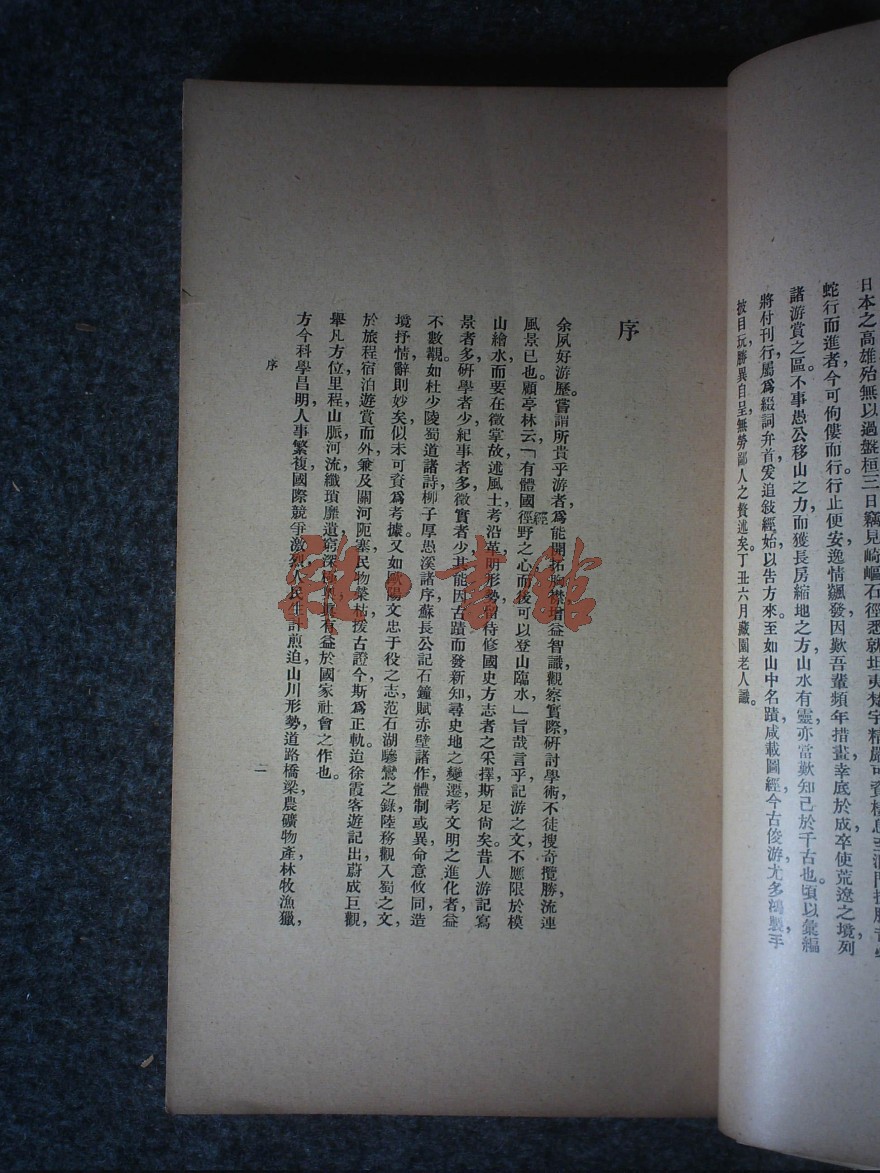 日本之高雄殆無以過盤桓三日竊見崎嶇石徑悉就坦夷梵宇精嚴可資棲息至
蛇行而進者今可佝僂而行行止便安逸情飆發因歎吾輩頻年措畫幸底於成卒使荒遼之境列
諸游賞之區不事愚公移山之力而獲長房縮地之方山水有靈亦當歎知己於千古也頃以彙編
將付刊行屬爲綴詞弁首爰追敍經始以告方來至如山中名蹟咸載圖經今古俊游尤多鴻製手
披目玩勝異自呈無勞鄙人之贅述矣丁丑六月藏園老人識。
序
余夙好游歷嘗謂所貴乎游者爲能開拓胸襟增益智識觀察實際研討學術不徒搜奇攬勝流連
風景已也。顧亭林云「有體國徑野之心而後可以登山臨水」旨哉言乎記游之文不應限於模
經
山繪水而要在徵掌故述風土考沿革明形勢留待修國史方志者之采擇斯足尙矣昔人游記寫
景者多硏學者少紀事者多徵實者少其能因古蹟而發新知尋史地之變遷考文明之進化者益
不數覯如杜少陵蜀道諸詩柳子厚愚溪諸序蘇長公記石鐘賦赤壁諸作體制或異命意攸同造
境抒情辭則妙矣似未可資爲考據又如歐陽文忠于役之志范石湖驂鸞之錄陸務觀入蜀之文
於旅程宿泊遊賞而外兼及關河阨塞民物榮枯援古證今斯爲正軌迨徐霞客遊記出蔚成巨觀
舉凡方位里程山脈河流纖瑣靡遺窮深極奧眞有益於國家社會之作也。
方今科學昌明人事繁複國際競爭激烈人民生計煎迫山川形勢道路橋梁農礦物產林牧漁獵
序
二
雜·書館